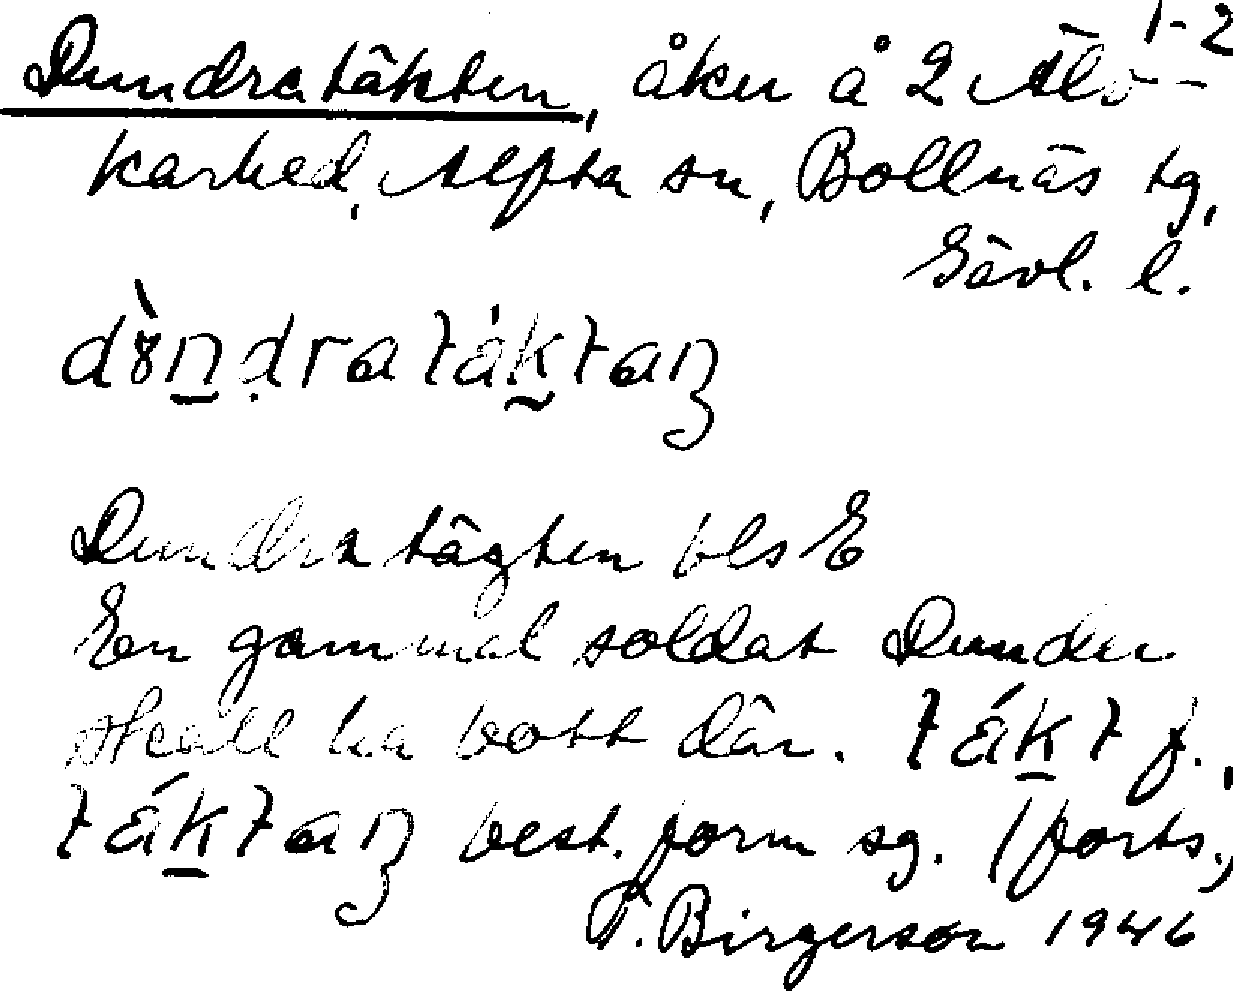 Dundratäkten, åker å 2 Älv-
karhed, Alfta sn, Bollnäs tg,
Gävl. l.
Dundratägten bls E
En gammal soldat Dunder
skall ha bott där. täkt f.,
täktaŋ best. form sg. (forts.)
T. Birgerson 1946